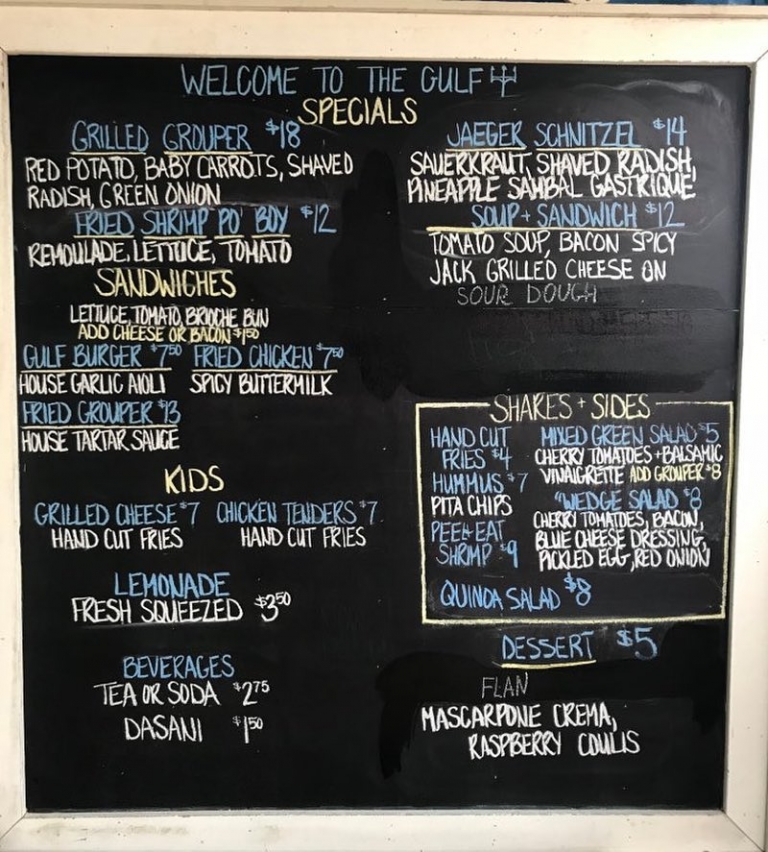 WELCOME TO THE GULF
SPECIALS
GRILLED GROUPER $18
RED POTATO, BABY CARROTS, SHAVED
RADISH, GREEN ONION
FRIED SHRIMP PO' BOY $12
REMOULADE, LETTUCE, TOMATO
JAEGER SCHNITZEL $14
SAUERKRAUT, SHAVED RADISH,
PINEAPPLE SAMBAL GASTRIQUE
SOUP + SANDWICH $12
TOMATO SOUP, BACON SPICY
JACK GRILLED CHEESE ON
SOUR DOUGH
SANDWICHES
LETTUCE, TOMATO, BRIOCHE BUN
ADD CHEESE OR BACON $1.50
GULF BURGER $7.50 FRIED CHICKEN $7.50
HOUSE GARLIC AIOLI SPICY BUTTERMILK
FRIED GROUPER $13
HOUSE TARTAR SAUCE
KIDS
GRILLED CHEESE $7 CHICKEN TENDERS $7
HAND CUT FRIES HAND CUT FRIES
LEMONADE
FRESH SQUEEZED $3.50
BEVERAGES
TEA OR SODA $2.75
DASANI $1.50
SHAKES + SIDES
HAND CUT
FRIES $4
HUMMUS $7
PITA CHIPS
PEEL + EAT
SHRIMP $9
QUINOA SALAD $8
MIXED GREEN SALAD $5
CHERRY TOMATOES + BALSAMIC
VINAIGRETTE ADD GROUPER $8
"WEDGE SALAD $8
CHERRY TOMATOES, BACON,
BLUE CHEESE DRESSING,
PICKLED EGG, RED ONION
DESSERT $5
FLAN
MASCARPONE CREMA,
RASPBERRY COULIS